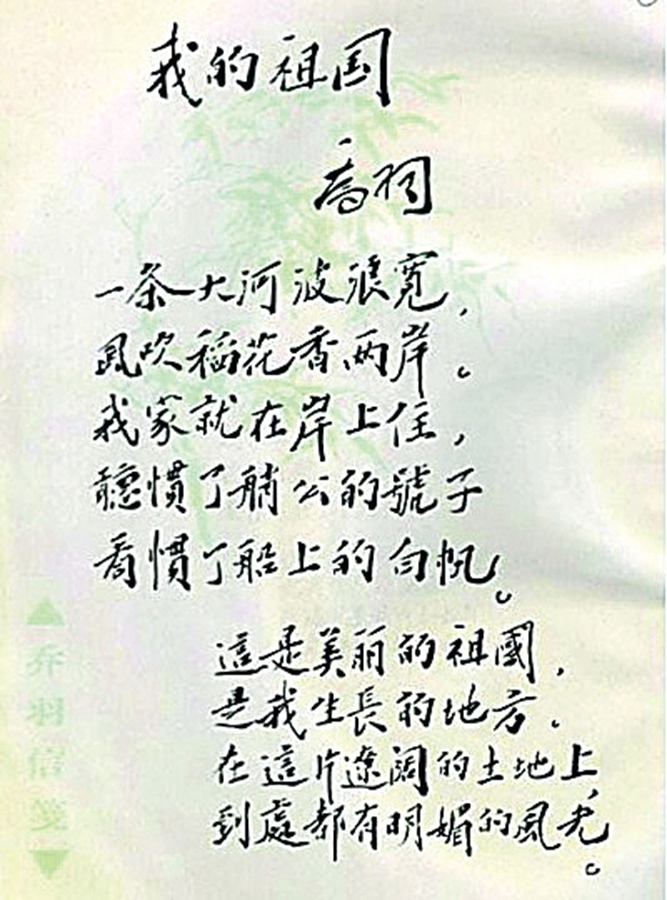 我的祖国
喬羽
一条大河波浪寬，
風吹稻花香两岸。
我家就在岸上住，
聽慣了艄公的號子
看慣了船上的白帆。
這是美丽的祖國，
是我生長的地方．
在這片遼阔的土地上，
到處都有明媚的風光。
乔羽信笺